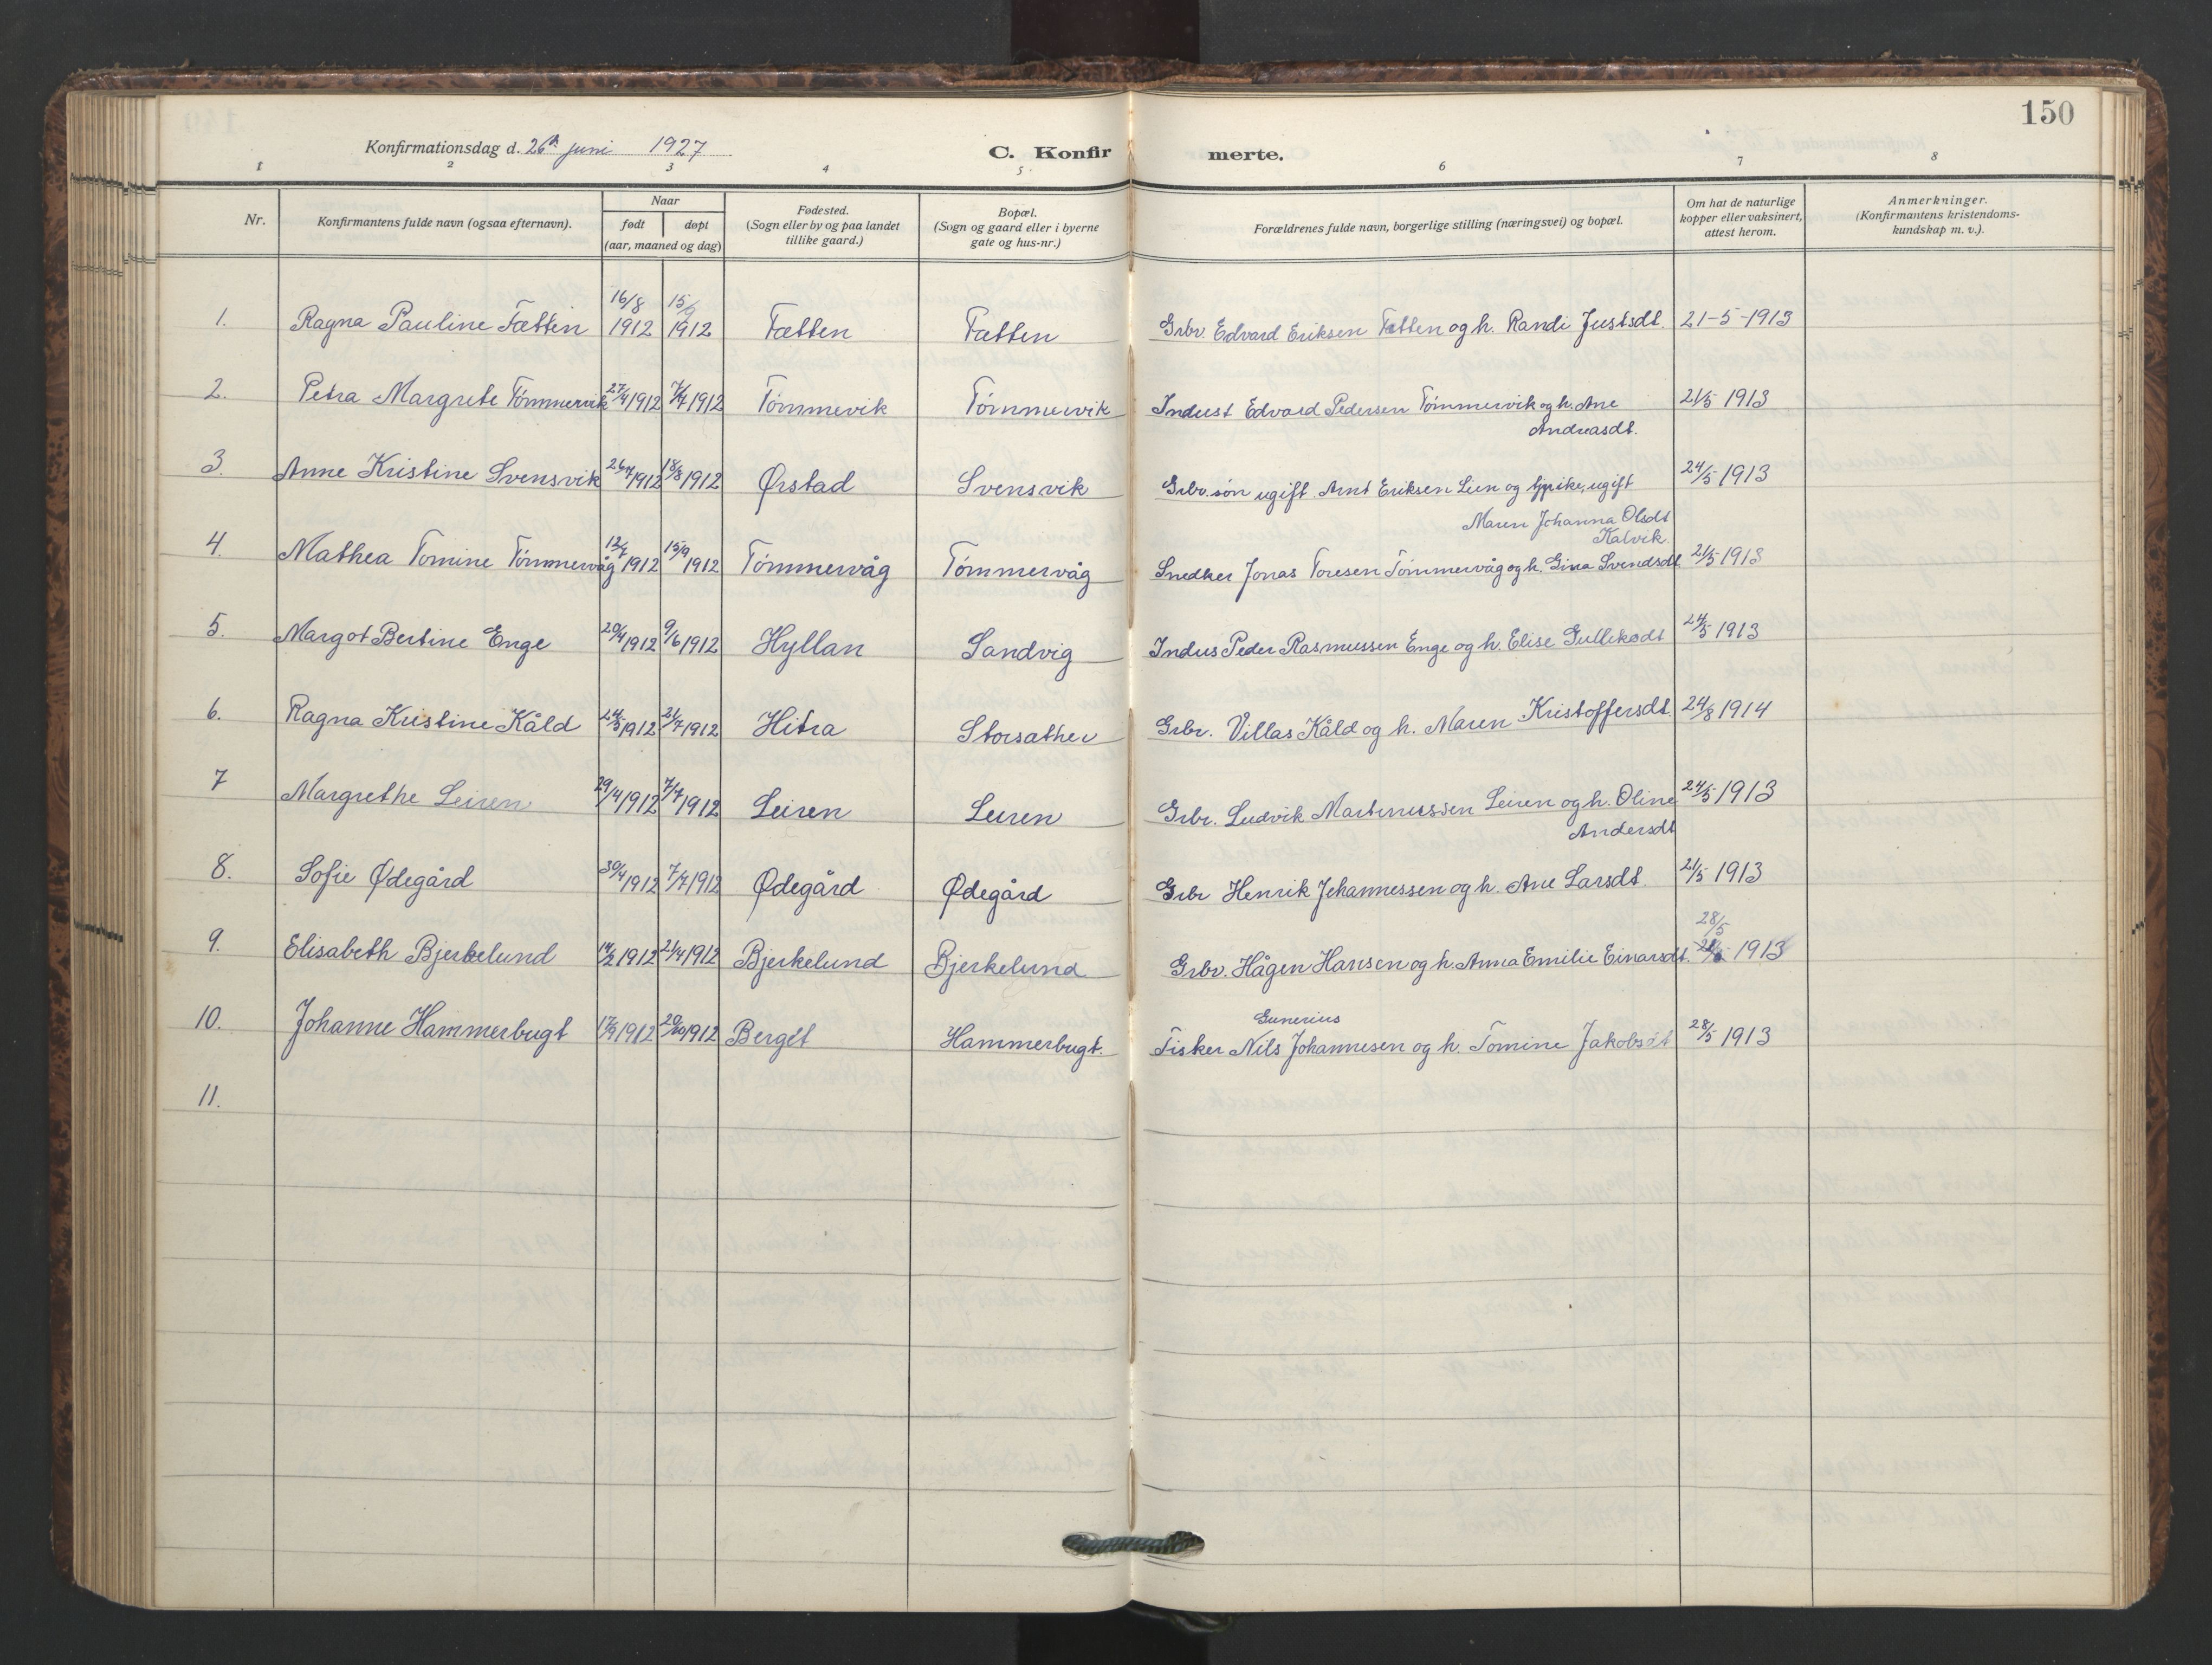 150
Konfirmationsdag d. 26de juni 1927
C. Konfirmerte.
1 2 3 4 5 6 7 8
Nr. Konfirmantens fulde navn (ogsaa efternavn). Naar født døpt (aar, maaned og dag) Fødested. (Sogn eller by og paa landet tillike gaard.) Bopæl. (Sogn og gaard eller i byerne gate og hus-nr.) Forældrenes fulde navn, borgerlige stilling (næringsvei) og bopæl. Om hat de naturlige kopper eller vaksinert, attest herom. Anmerkninger. (Konfirmantens kristendoms-kundskap m. v.).
1. Ragna Pauline Fætten 16/8 1912 15/9 1912 Fætten Fætten Grbr. Edvard Eriksen Fætten og h. Randi Justsdt. 21-5-1913
2. Petra Margrete Tömmervik 27/4 1912 7/7 1912 Tömmevik Tömmervik Indust Edvard Pedersen Tömmervik og h. Ane
Andreasdt. 21/5 1913
3. Anne Kristine Svensvik 26/7 1912 18/8 1912 Ørstad Svensvik Grbr.søn ugift Arnt Eriksen Lien og pike, ugift
Maren Johanna Olsdt
Kalvik. 24/5 1913
4. Mathea Tomine Tömmervåg 12/7 1912 15/9 1912 Tömmervåg Tömmervåg Snedker Jonas Toresen Tömmervåg og h. Gina Svendsdt. 21/5 1913
5. Margot Bertine Enge 20/4 1912 9/6 1912 Hyllan Sandvig Indus Peder Rasmussen Enge og h. Elise Gulleksdt 24/5 1913
6. Ragna Kristine Kåld 24/5 1912 21/7 1912 Hitra Storsather Grbr. Villas Kåld og h. Maren Kristoffersdt. 24/8 1914
7 Margrethe Leiren 29/4 1912 7/7 1912 Leiren Leiren Grbr. Ludvik Martinussen Leiren og h. Oline
Andersdt 24/5 1913
8. Sofie Ødegård 30/4 1912 7/7 1912 Ødegård Ødegård Grbr Henrik Johannessen og h. Ane Larsdt. 21/5 1913
28/5
9. Elisabeth Bjerkelund 14/2 1912 21/4 1912 Bjerkelund Bjerkelund Grbr. Hågen Hansen og h. Anna Emilie Einarsdt. 1913
Gunerius
10. Johanne Hammerbugt 17/9 1912 20/10 1912 Berget Hammerbugt. Fisker Nils Johannesen og h. Tomine Jakobsdt 28/5 1913
11.